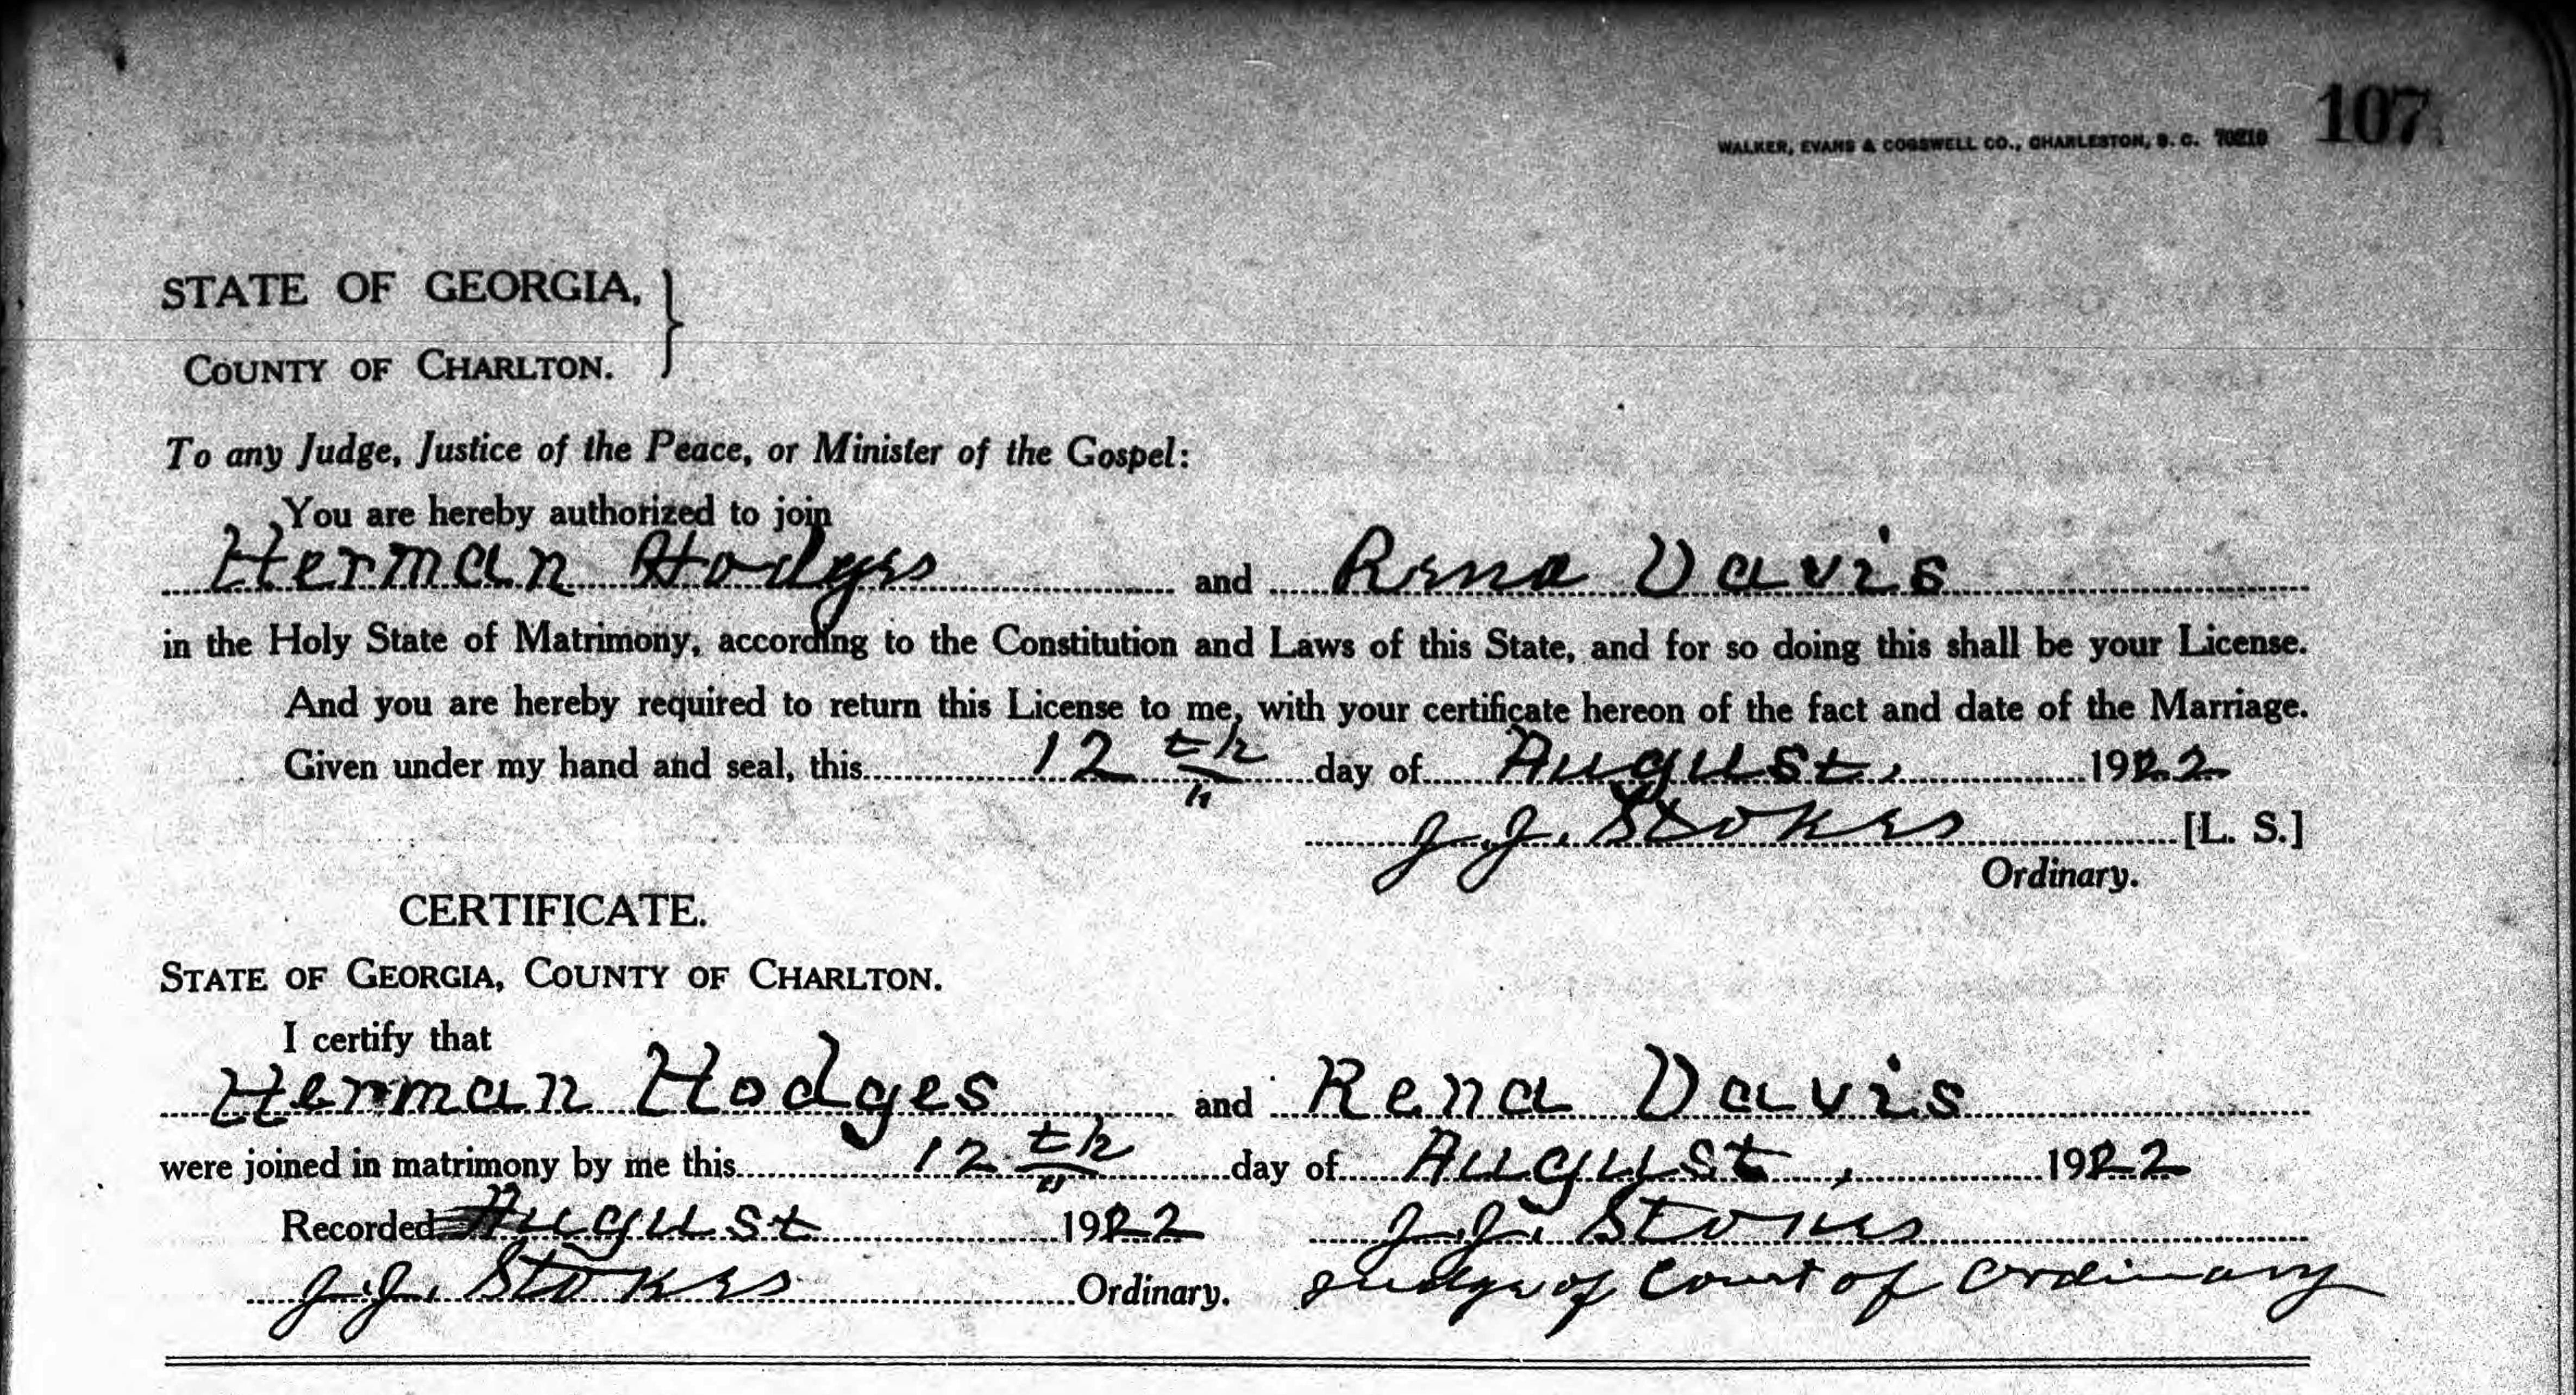 107
WALKER, EVANS & COGSWELL CO., CHARLESTON, S. C. 70210
STATE OF GEORGIA,
COUNTY OF CHARLTON.
To any Judge, Justice of the Peace, or Minister of the Gospel:
You are hereby authorized to join
Herman Hodges and Rena Davis
in the Holy State of Matrimony, according to the Constitution and Laws of this State, and for so doing this shall be your License.
And you are hereby required to return this License to me, with your certificate hereon of the fact and date of the Marriage.
Given under my hand and seal, this 12th day of August, 1922
J. J. Stokes [L. S.]
Ordinary.
CERTIFICATE.
STATE OF GEORGIA, COUNTY OF CHARLTON.
I certify that
Herman Hodges and Rena Davis
were joined in matrimony by me this 12th day of August, 1922
Recorded August 1922 J. J. Stokes
J. J. Stokes Ordinary. Judge of Court of Ordinary